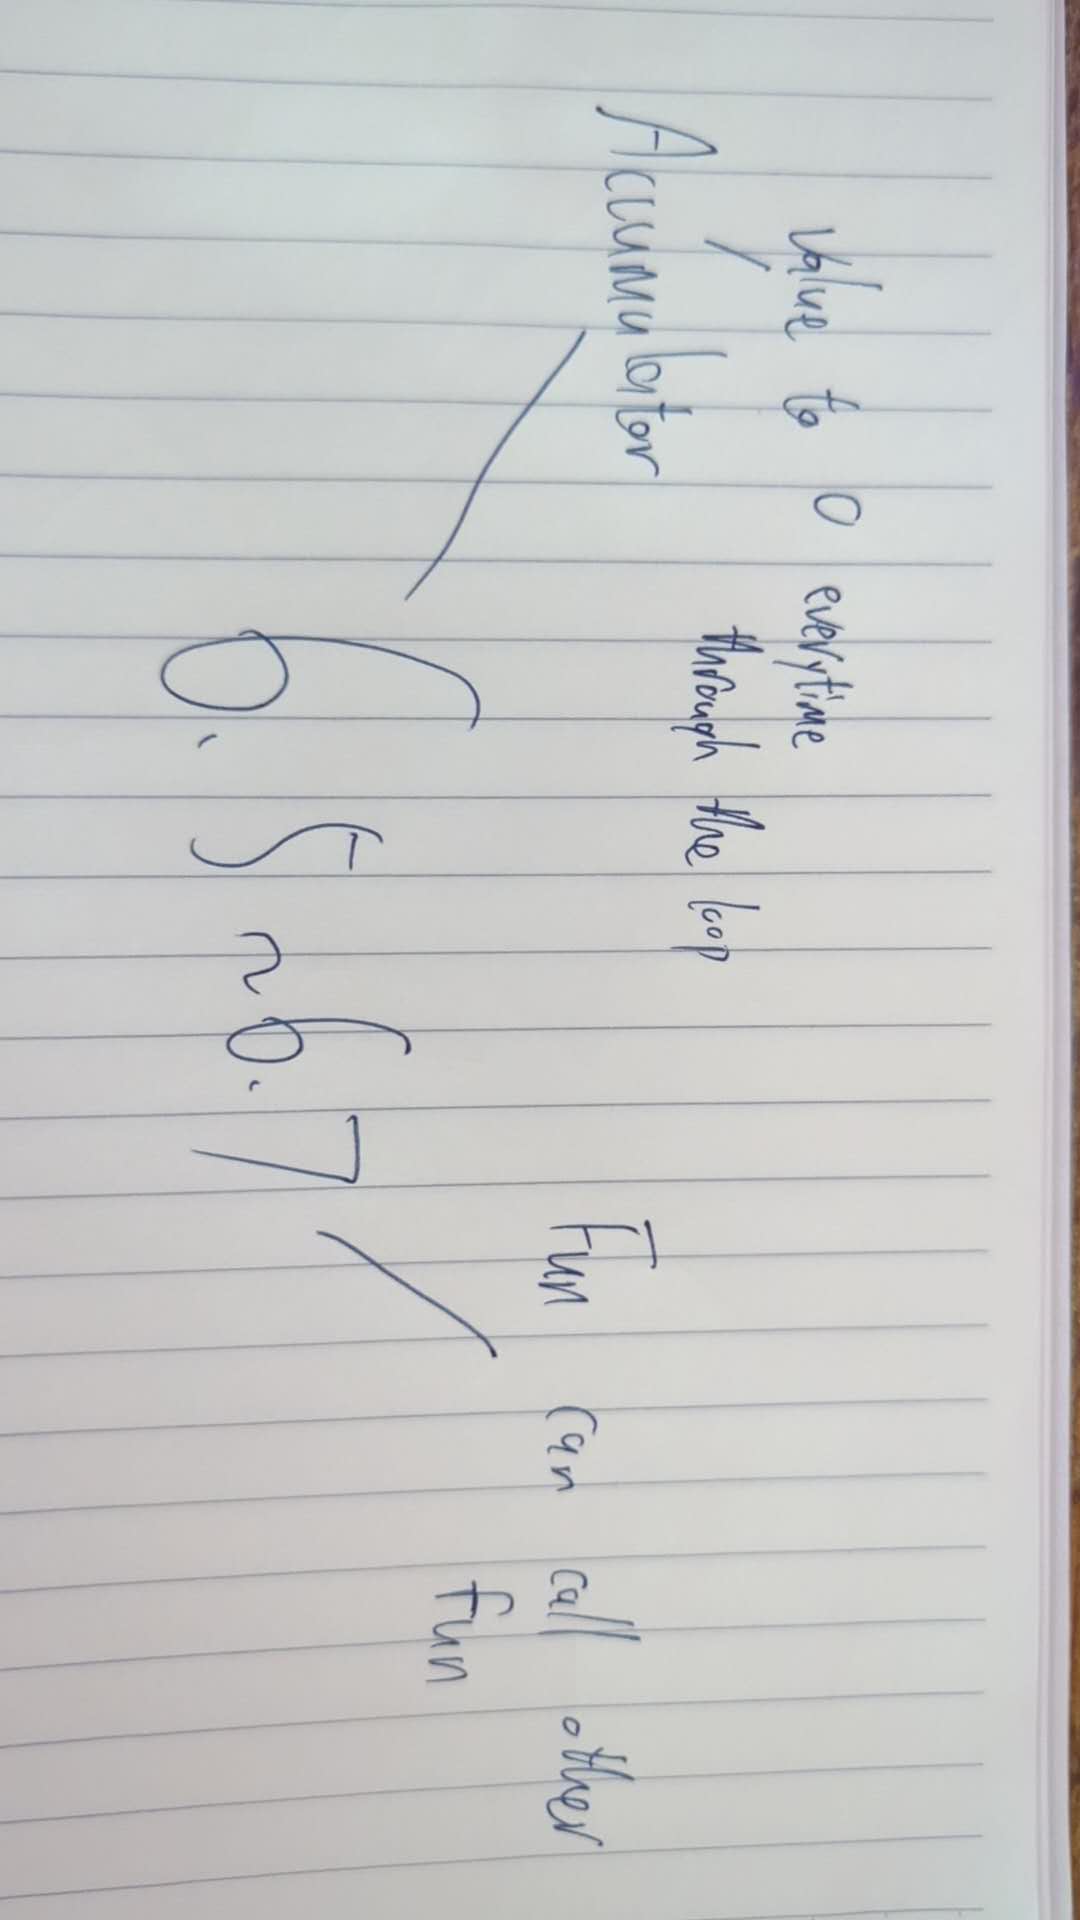 Value to 0 everytime
through the loop
Accumulator
Fun can call other
fun
6.5 ~ 6.7